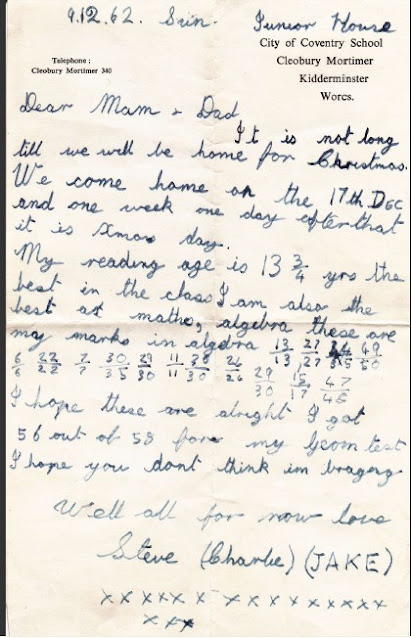 9.12.62. Sun. Junior House
City of Coventry School
Telephone: Cleobury Mortimer
Cleobury Mortimer 340 Kidderminster
Worcs.
Dear Mam & Dad
It is not long
till we will be home for Christmas.
We come home on the 17th DEC
and one week one day after that
it is Xmas day.
My reading age is 13 3/4 yrs the
best in the class I am also the
best at maths, algebra these are
my marks in algebra 13/13 27/27 49/50
6/6 22/22 7/7 30/35 29/30 11/11 30/30 26/26 29/30 15/17 47/48
I hope these are alright I got
56 out of 58 for my Geom test
I hope you dont think im braging
Well all for now love
Steve (Charlie) (JAKE)
x x x x x x x x x x x x x x x
x x x